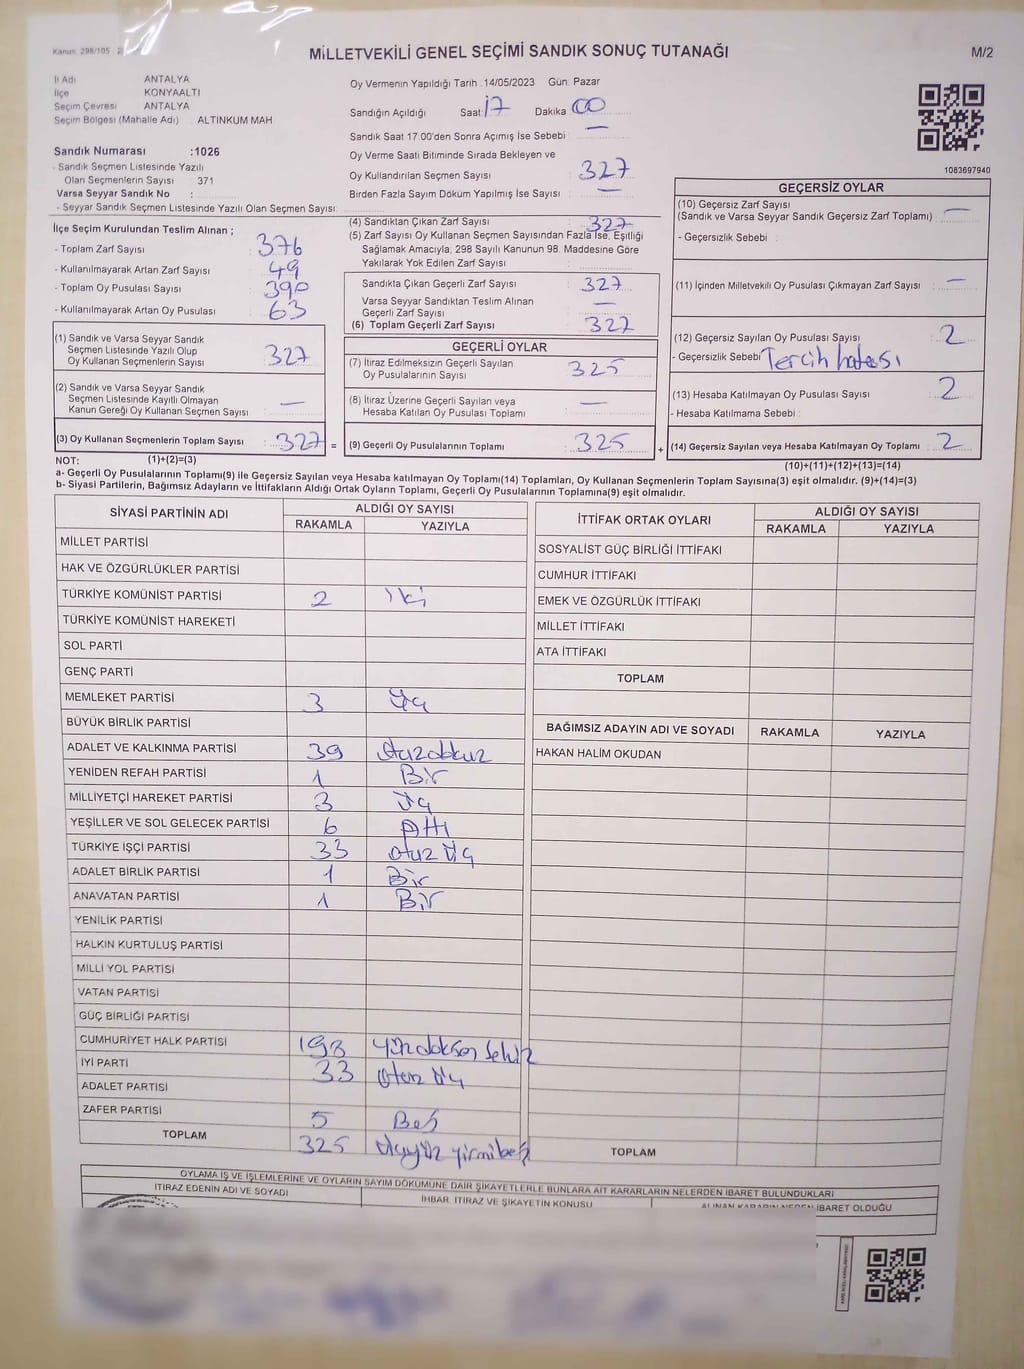 Kanun: 298/105
MİLLETVEKİLİ GENEL SEÇİMİ SANDIK SONUÇ TUTANAĞI
M/2
İl Adı ANTALYA
İlçe KONYAALTI
Seçim Çevresi ANTALYA
Seçim Bölgesi (Mahalle Adı) ALTINKUM MAH
Sandık Numarası :1026
- Sandık Seçmen Listesinde Yazılı
Olan Seçmenlerin Sayısı : 371
Varsa Seyyar Sandık No :
- Seyyar Sandık Seçmen Listesinde Yazılı Olan Seçmen Sayısı:
Oy Vermenin Yapıldığı Tarih : 14/05/2023 Gün: Pazar
Sandığın Açıldığı Saat 17 Dakika 00
Sandık Saat 17.00'den Sonra Açımış İse Sebebi : —
Oy Verme Saati Bitiminde Sırada Bekleyen ve
Oy Kullandırılan Seçmen Sayısı : 327
Birden Fazla Sayım Döküm Yapılmış İse Sayısı : —
1083697940
İlçe Seçim Kurulundan Teslim Alınan ;
- Toplam Zarf Sayısı : 376
- Kullanılmayarak Artan Zarf Sayısı : 49
- Toplam Oy Pusulası Sayısı : 390
- Kullanılmayarak Artan Oy Pusulası : 63
(1) Sandık ve Varsa Seyyar Sandık
Seçmen Listesinde Yazılı Olup
Oy Kullanan Seçmenlerin Sayısı : 327
(2) Sandık ve Varsa Seyyar Sandık
Seçmen Listesinde Kayıtlı Olmayan
Kanun Gereği Oy Kullanan Seçmen Sayısı : —
(3) Oy Kullanan Seçmenlerin Toplam Sayısı : 327 =
(4) Sandıktan Çıkan Zarf Sayısı : 327
(5) Zarf Sayısı Oy Kullanan Seçmen Sayısından Fazla İse, Eşitliği
Sağlamak Amacıyla, 298 Sayılı Kanunun 98. Maddesine Göre
Yakılarak Yok Edilen Zarf Sayısı :
Sandıkta Çıkan Geçerli Zarf Sayısı : 327
Varsa Seyyar Sandıktan Teslim Alınan
Geçerli Zarf Sayısı : —
(6) Toplam Geçerli Zarf Sayısı : 327
GEÇERLİ OYLAR
(7) İtiraz Edilmeksizin Geçerli Sayılan
Oy Pusulalarının Sayısı : 325
(8) İtiraz Üzerine Geçerli Sayılan veya
Hesaba Katılan Oy Pusulası Toplamı : —
(9) Geçerli Oy Pusulalarının Toplamı : 325 +
GEÇERSİZ OYLAR
(10) Geçersiz Zarf Sayısı
(Sandık ve Varsa Seyyar Sandık Geçersiz Zarf Toplamı) : —
- Geçersizlik Sebebi :
(11) İçinden Milletvekili Oy Pusulası Çıkmayan Zarf Sayısı : —
(12) Geçersiz Sayılan Oy Pusulası Sayısı : 2
- Geçersizlik Sebebi : Tercih hatası
(13) Hesaba Katılmayan Oy Pusulası Sayısı : 2
- Hesaba Katılmama Sebebi :
(14) Geçersiz Sayılan veya Hesaba Katılmayan Oy Toplamı : 2
NOT: (1)+(2)=(3)
(10)+(11)+(12)+(13)=(14)
a- Geçerli Oy Pusulalarının Toplamı(9) ile Geçersiz Sayılan veya Hesaba katılmayan Oy Toplamı(14) Toplamları, Oy Kullanan Seçmenlerin Toplam Sayısına(3) eşit olmalıdır. (9)+(14)=(3)
b- Siyasi Partilerin, Bağımsız Adayların ve İttifakların Aldığı Ortak Oyların Toplamı, Geçerli Oy Pusulalarının Toplamına(9) eşit olmalıdır.
SİYASİ PARTİNİN ADI
ALDIĞI OY SAYISI
RAKAMLA YAZIYLA
MİLLET PARTİSİ
HAK VE ÖZGÜRLÜKLER PARTİSİ
TÜRKİYE KOMÜNİST PARTİSİ 2 iki
TÜRKİYE KOMÜNİST HAREKETİ
SOL PARTİ
GENÇ PARTİ
MEMLEKET PARTİSİ 3 üç
BÜYÜK BİRLİK PARTİSİ
ADALET VE KALKINMA PARTİSİ 39 otuzdokuz
YENİDEN REFAH PARTİSİ 1 Bir
MİLLİYETÇİ HAREKET PARTİSİ 3 üç
YEŞİLLER VE SOL GELECEK PARTİSİ 6 Altı
TÜRKİYE İŞÇİ PARTİSİ 33 otuz üç
ADALET BİRLİK PARTİSİ 1 Bir
ANAVATAN PARTİSİ 1 Bir
YENİLİK PARTİSİ
HALKIN KURTULUŞ PARTİSİ
MİLLİ YOL PARTİSİ
VATAN PARTİSİ
GÜÇ BİRLİĞİ PARTİSİ
CUMHURİYET HALK PARTİSİ 198 yüzdoksan sekiz
İYİ PARTİ 33 otuz üç
ADALET PARTİSİ
ZAFER PARTİSİ 5 Beş
TOPLAM 325 üçyüz yirmibeş
İTTİFAK ORTAK OYLARI
ALDIĞI OY SAYISI
RAKAMLA YAZIYLA
SOSYALİST GÜÇ BİRLİĞİ İTTİFAKI
CUMHUR İTTİFAKI
EMEK VE ÖZGÜRLÜK İTTİFAKI
MİLLET İTTİFAKI
ATA İTTİFAKI
TOPLAM
BAĞIMSIZ ADAYIN ADI VE SOYADI RAKAMLA YAZIYLA
HAKAN HALİM OKUDAN
TOPLAM
OYLAMA İŞ VE İŞLEMLERİNE VE OYLARIN SAYIM DÖKÜMÜNE DAİR ŞİKAYETLERLE BUNLARA AİT KARARLARIN NELERDEN İBARET BULUNDUKLARI
İTİRAZ EDENİN ADI VE SOYADI
İHBAR, İTİRAZ VE ŞİKAYETİN KONUSU
ALINAN KARARIN NEDEN İBARET OLDUĞU